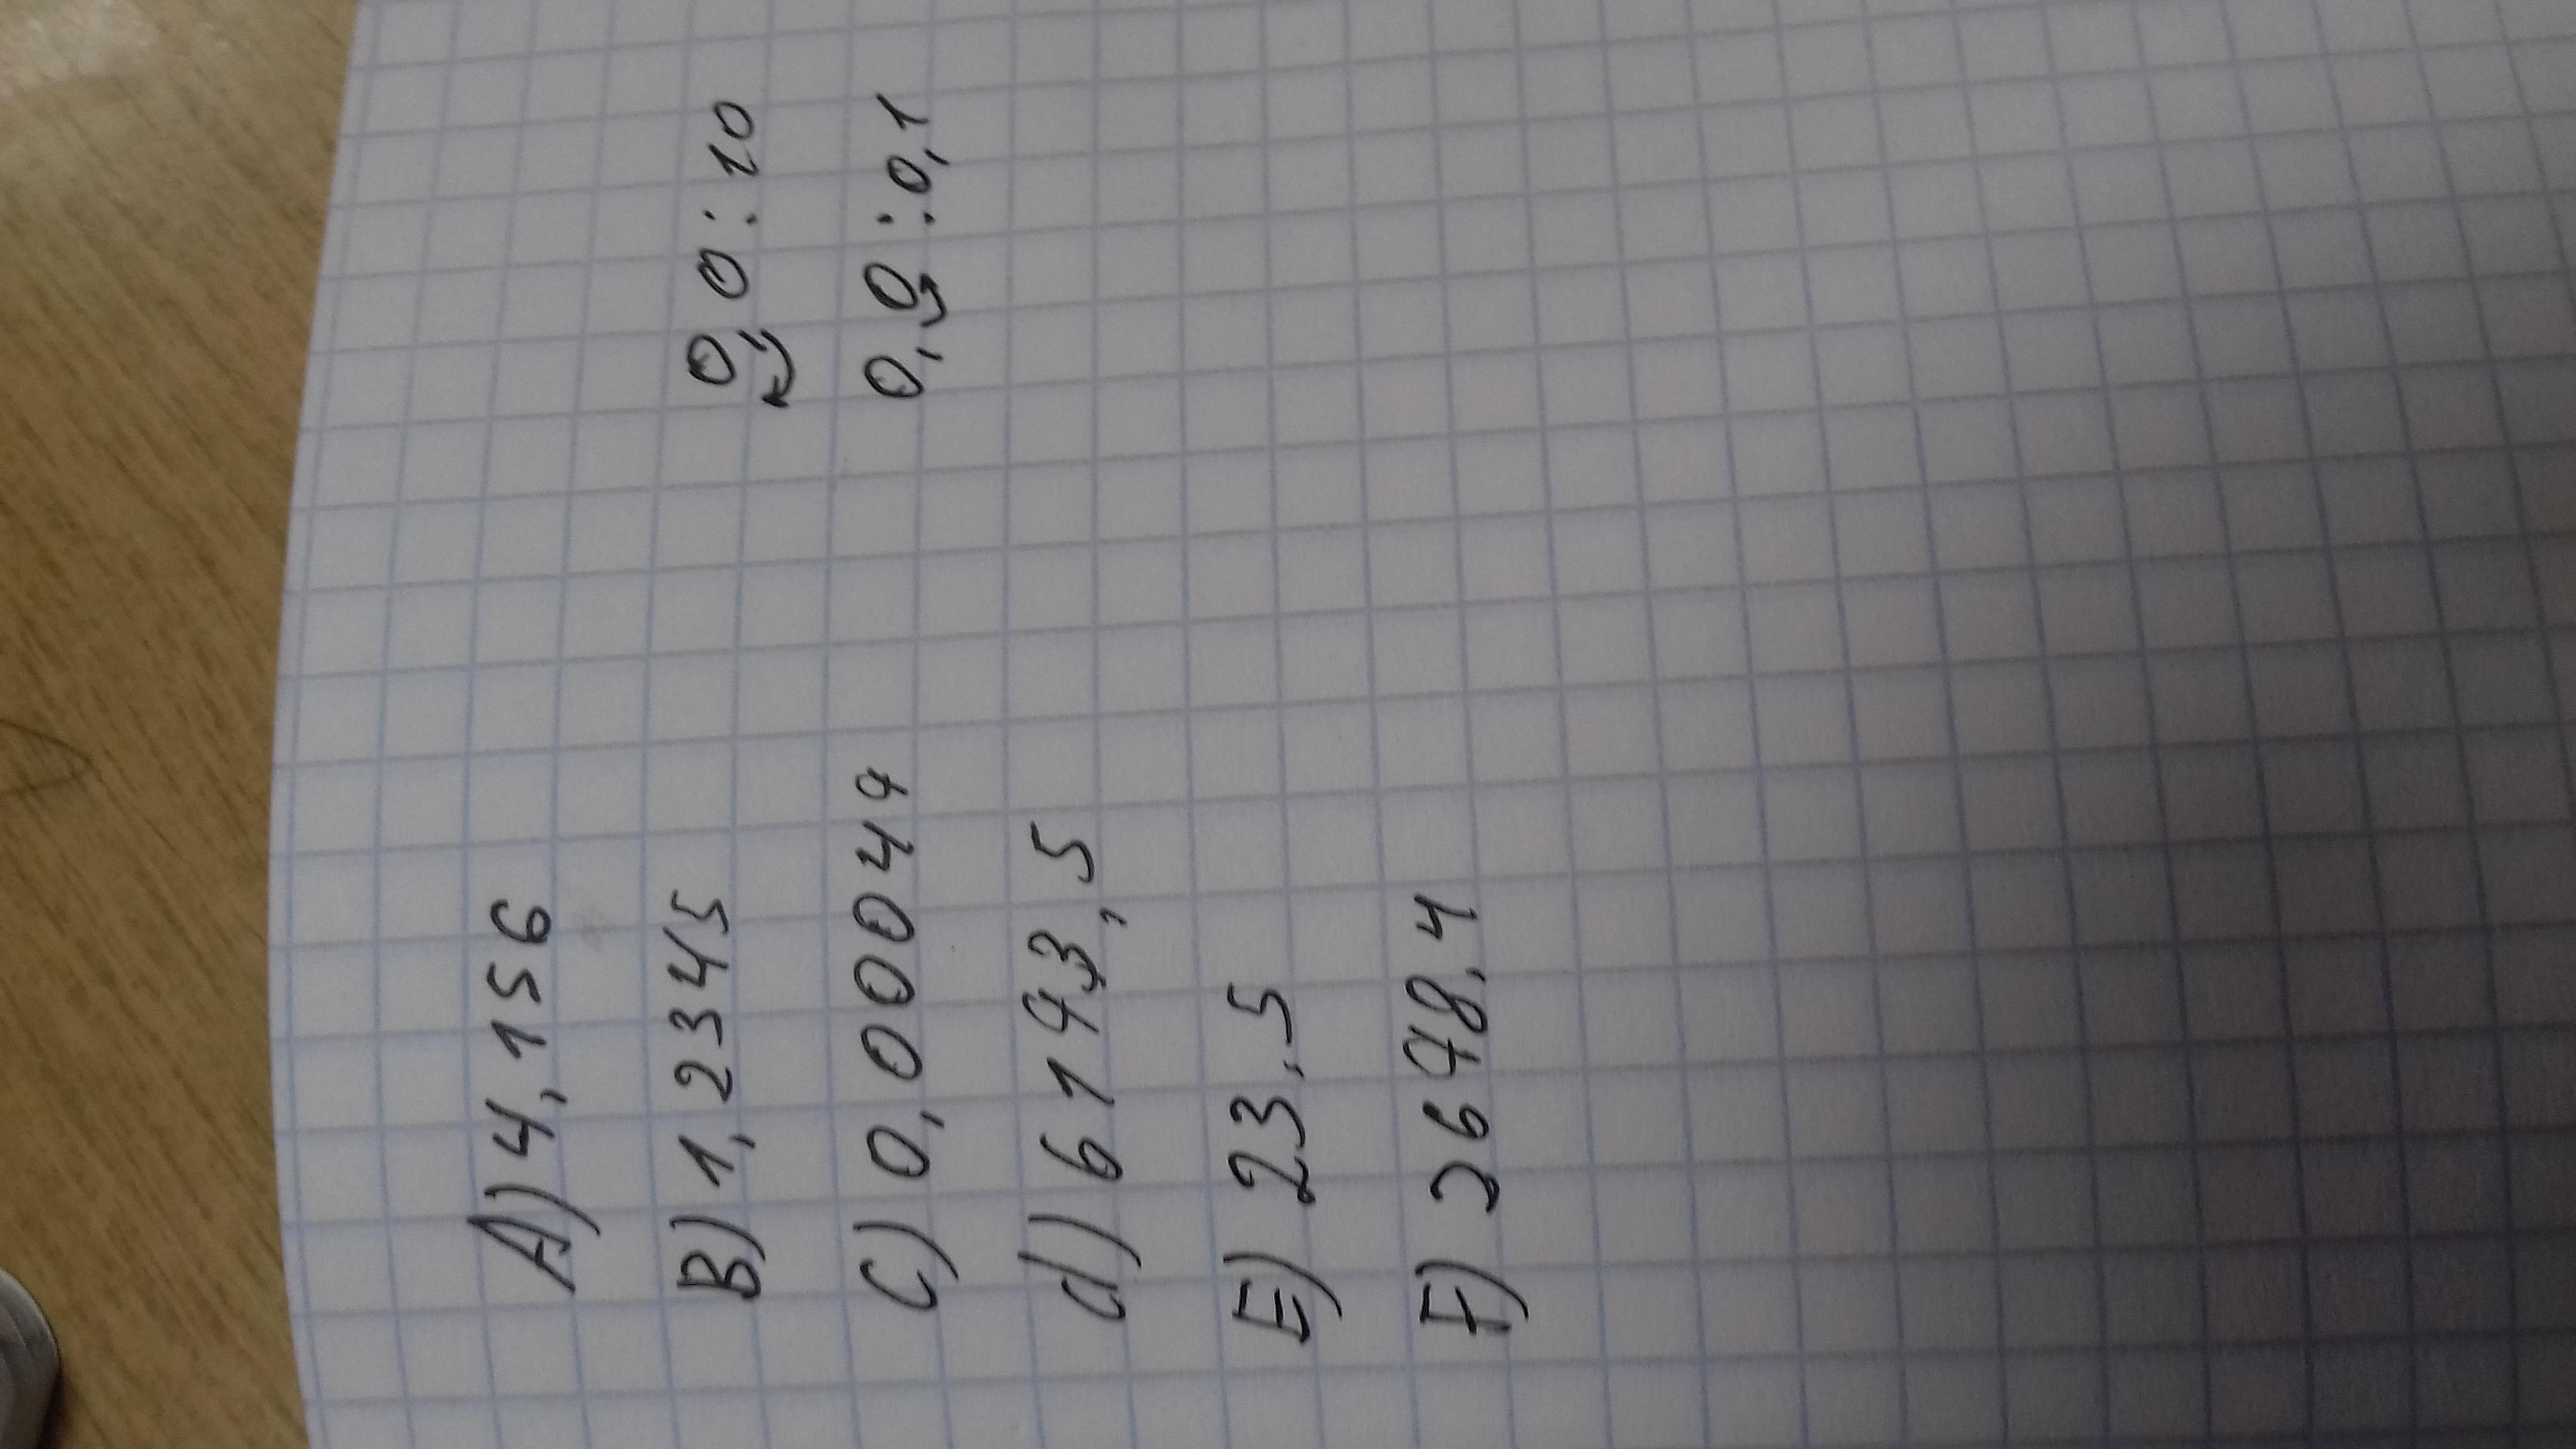 A) 4,156
B) 1,2345
C) 0,00049
d) 61943,5
E) 23,5
F) 36978,4
0,0:10
0,0:0,1